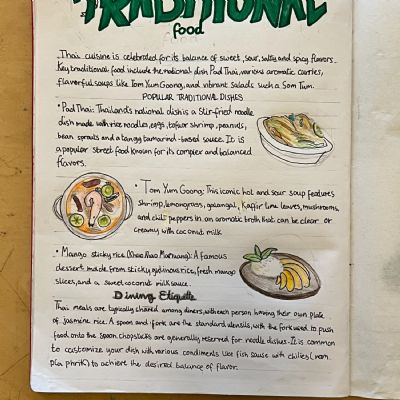 TRADITIONAL
food
Thai cuisine is celebrated for its balance of sweet, sour, salty and spicy flavors.
Key traditional food include the national dish Pad Thai, various aromatic curries,
flavorful soups like Tom Yum Goong, and vibrant salads such a Som Tum.
POPULAR TRADITIONAL DISHES
• Pad Thai: Thailand's national dish is a stir-fried noodle
dish made with rice noodles, eggs, tofu or shrimp, peanuts,
bean sprouts and a tangy tamarind-based sauce. It is
a popular street food known for its complex and balanced
flavors.
• Tom Yum Goong: This iconic hot and sour soup features
shrimp, lemongrass, galangal, Kaffir lime leaves, mushrooms,
and chili peppers in an aromatic broth that can be clear or
creamy with coconut milk
• Mango sticky rice (Khao Niao Mamuang): A famous
dessert made from sticky glutinous rice, fresh mango
slices, and a sweet coconut milk sauce.
Dining Etiquete
Thai meals are typically shared among diners, with each person having their own plate
of jasmine rice. A spoon and fork are the standard utensils, with the fork used to push
food onto the spoon. chopsticks are generally reserved for noodle dishes. It is common
to customize your dish with various condiments like fish sauce with chilies (nam
pla phrik) to achieve the desired balance of flavor.